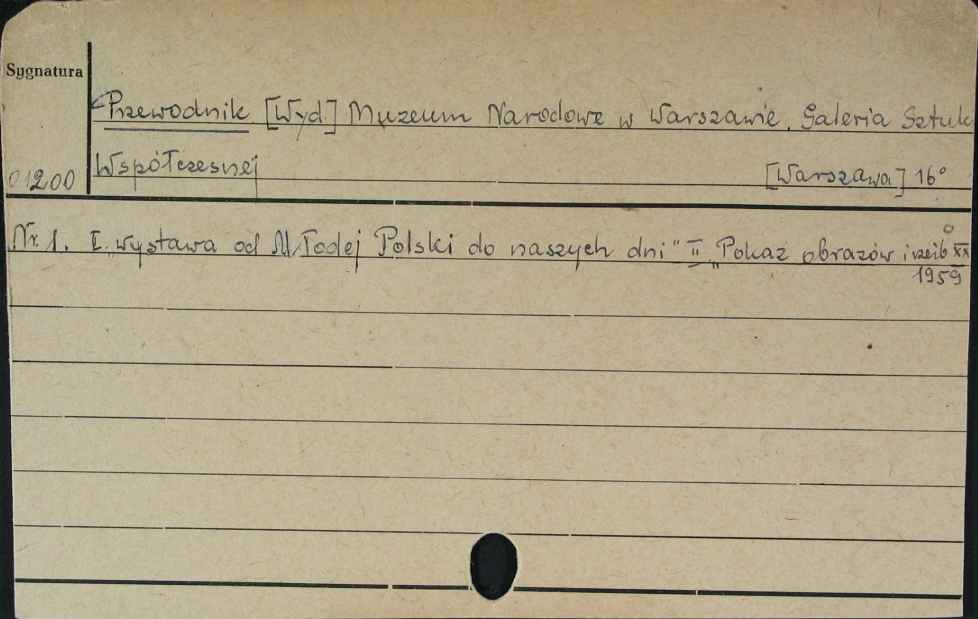 Sygnatura
Przewodnik [Wyd] Muzeum Narodowe w Warszawie. Galeria Sztuk
Współczesnej [Warszawa] 16°
01200
Nr. 1. I. „wystawa od Młodej Polski do naszych dni" II „Pokaz obrazów i rzeźb XX
1959